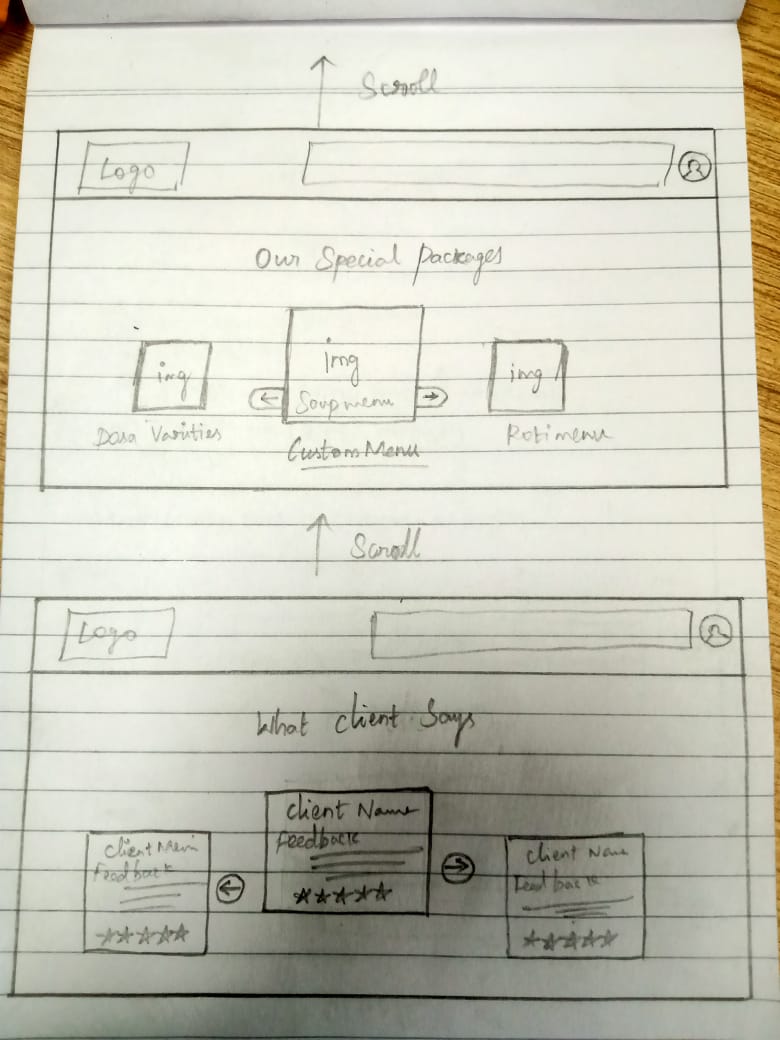 Scroll
Logo
Our Special Packages
img
img
img
Soup menu
Dosa Varities
Custom Menu
Roti menu
Scroll
Logo
What client Says
Client Name
Feedback
Client
Feedback
Client Name
Feedback